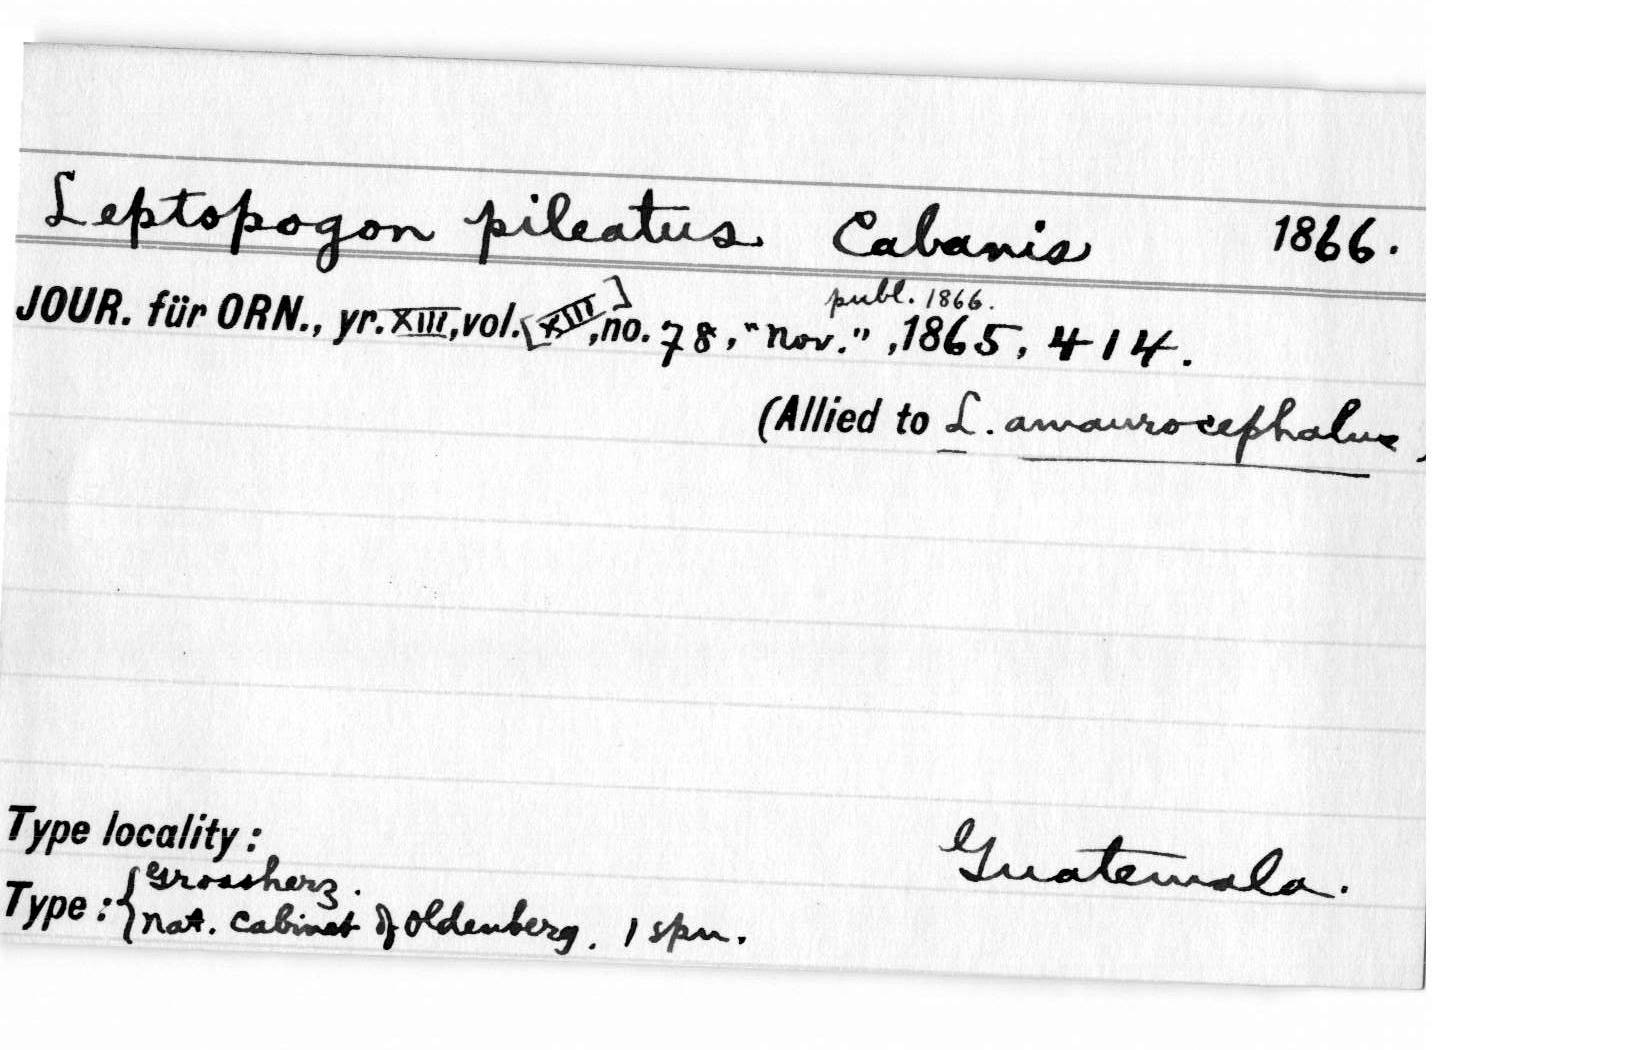 Leptopogon pileatus Cabanis 1866.
publ. 1866.
JOUR. für ORN., yr. XIII, vol. [XIII], no. 78, "Nov.", 1865, 414.
(Allied to L. amaurocephalus)
Type locality: Guatemala.
Type: { Grossherz.
Nat. Cabinet of Oldenberg. 1 spn.